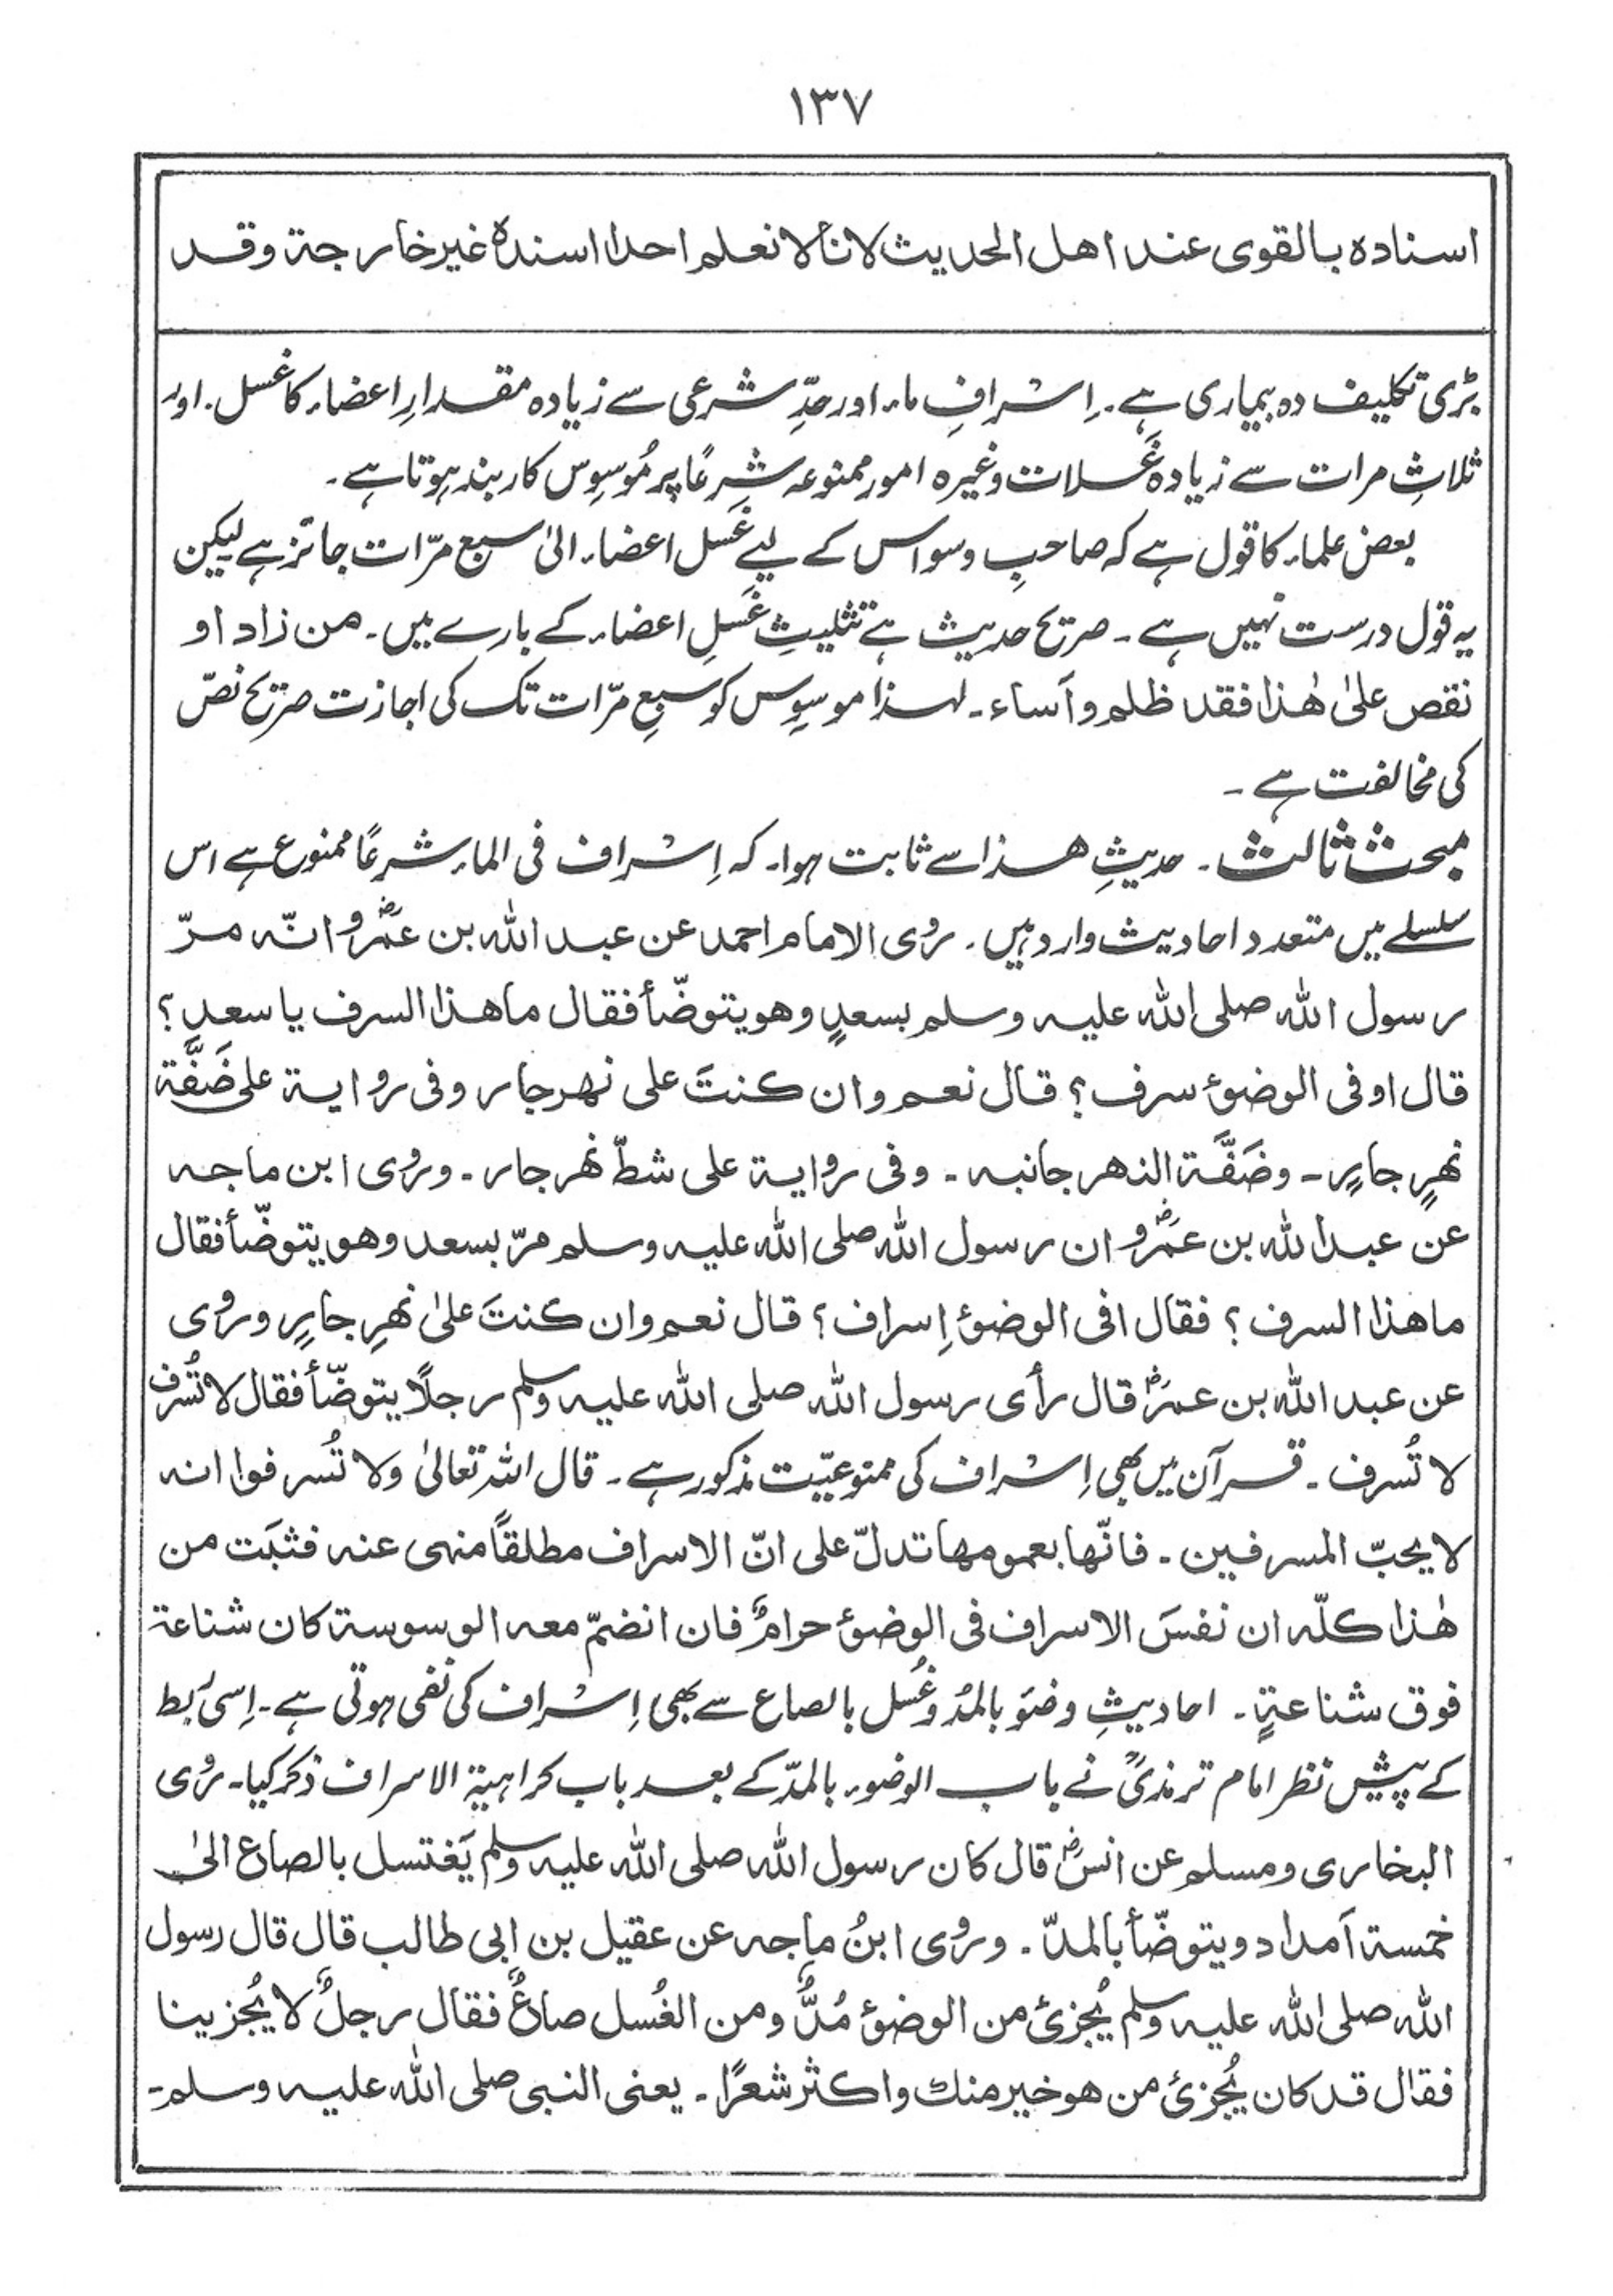 ۱۳۷
اسناده بالقوی عند اهل الحدیث لانا لا نعلم احدا اسندہ غیر خارجة وقد
بڑی تکلیف دہ بیماری ہے۔ اِسْرافِ ماء اور حدِّ شرعی سے زیادہ مقدارِ اعضاء کا غسل۔ اور
ثلاثِ مرات سے زیادہ غَسلات وغیرہ امور ممنوعہ شرعًا پر مُوسوِس کاربند ہوتا ہے۔
بعض علماء کا قول ہے کہ صاحبِ وسواس کے لیے غَسل اعضاء الیٰ سبع مرّات جائز ہے لیکن
یہ قول درست نہیں ہے۔ صریح حدیث ہے تثلیثِ غَسلِ اعضاء کے بارے میں۔ من زاد او
نقص علیٰ ھٰذا فقد ظلم وأساء۔ لہذا موسوِس کو سبعِ مرّات تک کی اجازت صریح نصّ
کی مخالفت ہے۔
مبحث ثالث۔ حدیثِ ھذا سے ثابت ہوا۔ کہ اِسْراف فی الماء شرعًا ممنوع ہے اس
سلسلے میں متعدد احادیث وارد ہیں۔ رَوٰی الامام احمد عن عبد اللہ بن عَمْرٍو انّہ مرّ
رسول اللہ صلی اللہ علیہ وسلم بسعدٍ وھو یتوضّأ فقال ما ھذا السرف یا سعد ؟
قال او فی الوضوئ سرف ؟ قال نعم وان کنتَ علی نھر جار وفی روایة علی ضَفَّة
نھرٍ جارٍ۔ وضَفَّة النھر جانبہ۔ وفی روایة علی شطّ نھر جار۔ وروٰی ابن ماجہ
عن عبد اللہ بن عَمْرٍو ان رسول اللہ صلی اللہ علیہ وسلم مرّ بسعد وھو یتوضّأ فقال
ما ھذا السرف ؟ فقال افی الوضوئ اِسراف ؟ قال نعم وان کنتَ علیٰ نھرِ جارٍ وروٰی
عن عبد اللہ بن عمرؓ قال رأی رسول اللہ صلی اللہ علیہ وسلم رجلًا یتوضّأ فقال لا تُسْرف
لا تُسرف۔ قرآن میں بھی اِسْراف کی ممنوعیّت مذکور ہے۔ قال اللہ تعالیٰ ولا تُسرفوا انہ
لا یحبّ المسرفین۔ فانّھا بعمومھا تدلّ علی انّ الاسراف مطلقاً منھی عنہ فثبَت من
ھٰذا کلّہ ان نفسَ الاسراف فی الوضوئ حرامٌ فان انضمّ معہ الوسوسة کان شناعة
فوق شناعةٍ۔ احادیثِ وضوٴ بالمُد وغُسل بالصاع سے بھی اِسْراف کی نفی ہوتی ہے۔ اِسی رَبط
کے پیشِ نظر امام ترمذیؒ نے باب الوضوء بالمدّ کے بعد باب کراہیۃ الاسراف ذکر کیا۔ رَوٰی
البخاری ومسلم عن انسؓ قال کان رسول اللہ صلی اللہ علیہ وسلم یَغتسل بالصاع الیٰ
خمسة اَمداد ویتوضّأ بالمدّ۔ وروٰی ابنُ ماجہ عن عقیل بن ابی طالب قال قال رسول
اللہ صلی اللہ علیہ وسلم یُجزئ من الوضوئ مُدٌّ ومن الغُسل صاعٌ فقال رجلٌ لا یُجزینا
فقال قد کان یُجزئ من ھو خیر منك واکثر شعرًا۔ یعنی النبی صلی اللہ علیہ وسلم۔